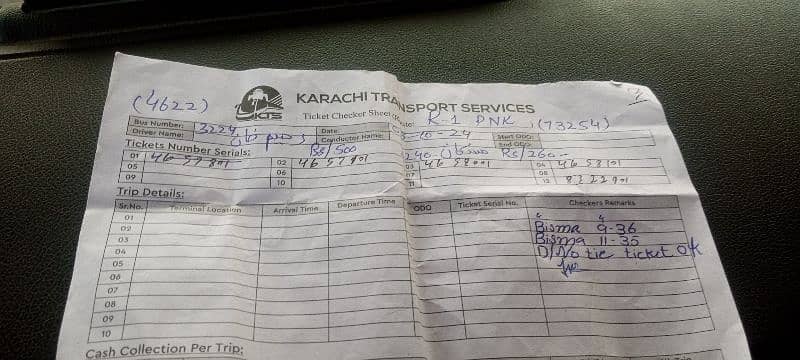 (4622)
KTS
KARACHI TRANSPORT SERVICES
Ticket Checker Sheet
R-1 PNK (73254)
Bus Number: 3224 Date: -10-24 Start ODO:
Driver Name: Conductor Name: End ODO:
Tickets Number Serials: Rs/500 240- مسکان Rs/260-
01 4657801 02 4657901 03 4658001 04 4658101
05 06 07 08
09 10 11 12 8322901
Trip Details:
Sr.No. Terminal Location Arrival Time Departure Time ODO Ticket Serial No. Checkers Remarks
01
02 Bisma 9-36
03 Bisma 11-35
04 D/No tie ticket ok
05
06
07
08
09
10
Cash Collection Per Trip: